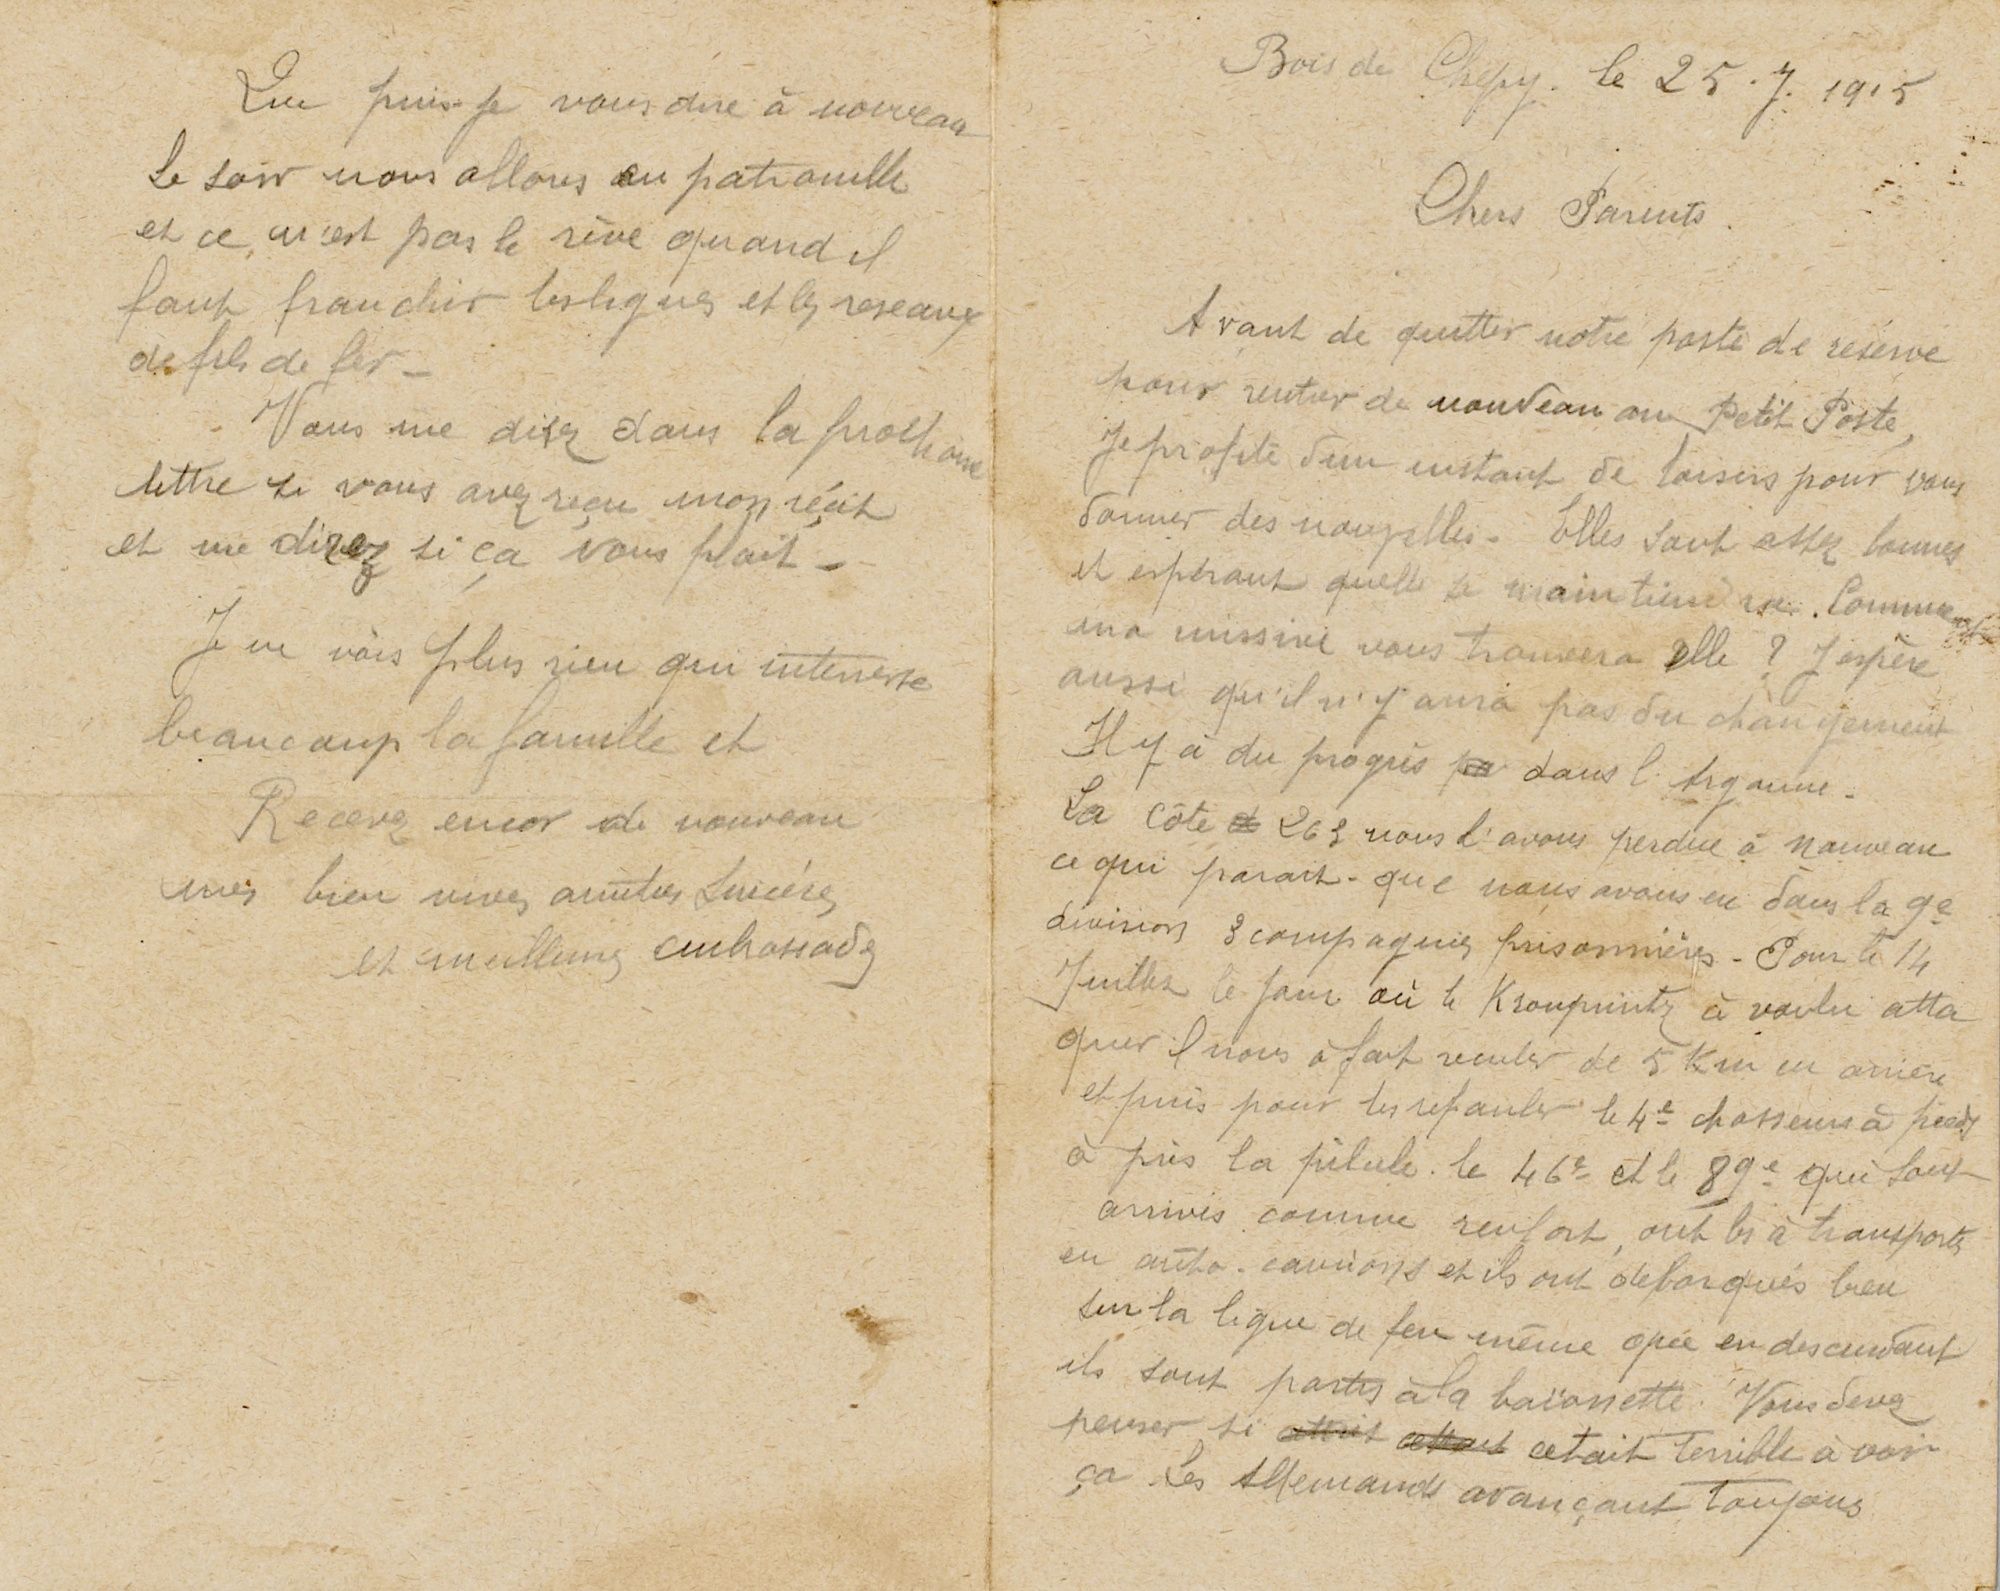 Bois de Chepy. le 25.7.1915
Chers Parents.
Avant de quitter notre poste de reserve
pour rentrer de nouveau au Petit Poste,
Je profite d'un instant de loisirs pour vous
donner des nouvelles. Elles sont assez bonnes
et espérant quelle se maintiendra. Comment
ma missive vous trouvera elle ? J'espère
aussi qu'il n'y aura pas du changement
Il y à du progrès dans l'Argonne.
La Côte 263 nous l'avons perdue à nouveau
ce qui parait. que nous avons eu dans la 9e
division 3 compagnies prisonnières. Pour le 14
Juillet le jour où le Kronprintz à voulu atta
quer il nous à fait reculer de 5 Km en arrière
et puis pour les refouler le 4e chasseurs à pieds
à pris la pilule. le 46e et le 89e qui sont
arrivés comme renfort, ont les à transportés
en auto-camions et ils ont debarqués bien
sur la ligne de feu même que en descendant
ils sont partis à la baïonnette. Vous devez
penser si cetait terrible à voir
ça Les Allemands avançant toujours
Que puis-je vous dire à nouveau
Le soir nous allons en patrouille
et ce n'est pas le rêve quand il
faut franchir les lignes et les reseaux
de fils de fer _
Vous me direz dans la prochaine
lettre si vous avez reçu mon récit
et me direz si ça vous plait _
Je ne vois plus rien qui interresse
beaucoup la famille et
Recevez encor de nouveau
mes bien vives amitiés Sincères
et meilleurs embrassades